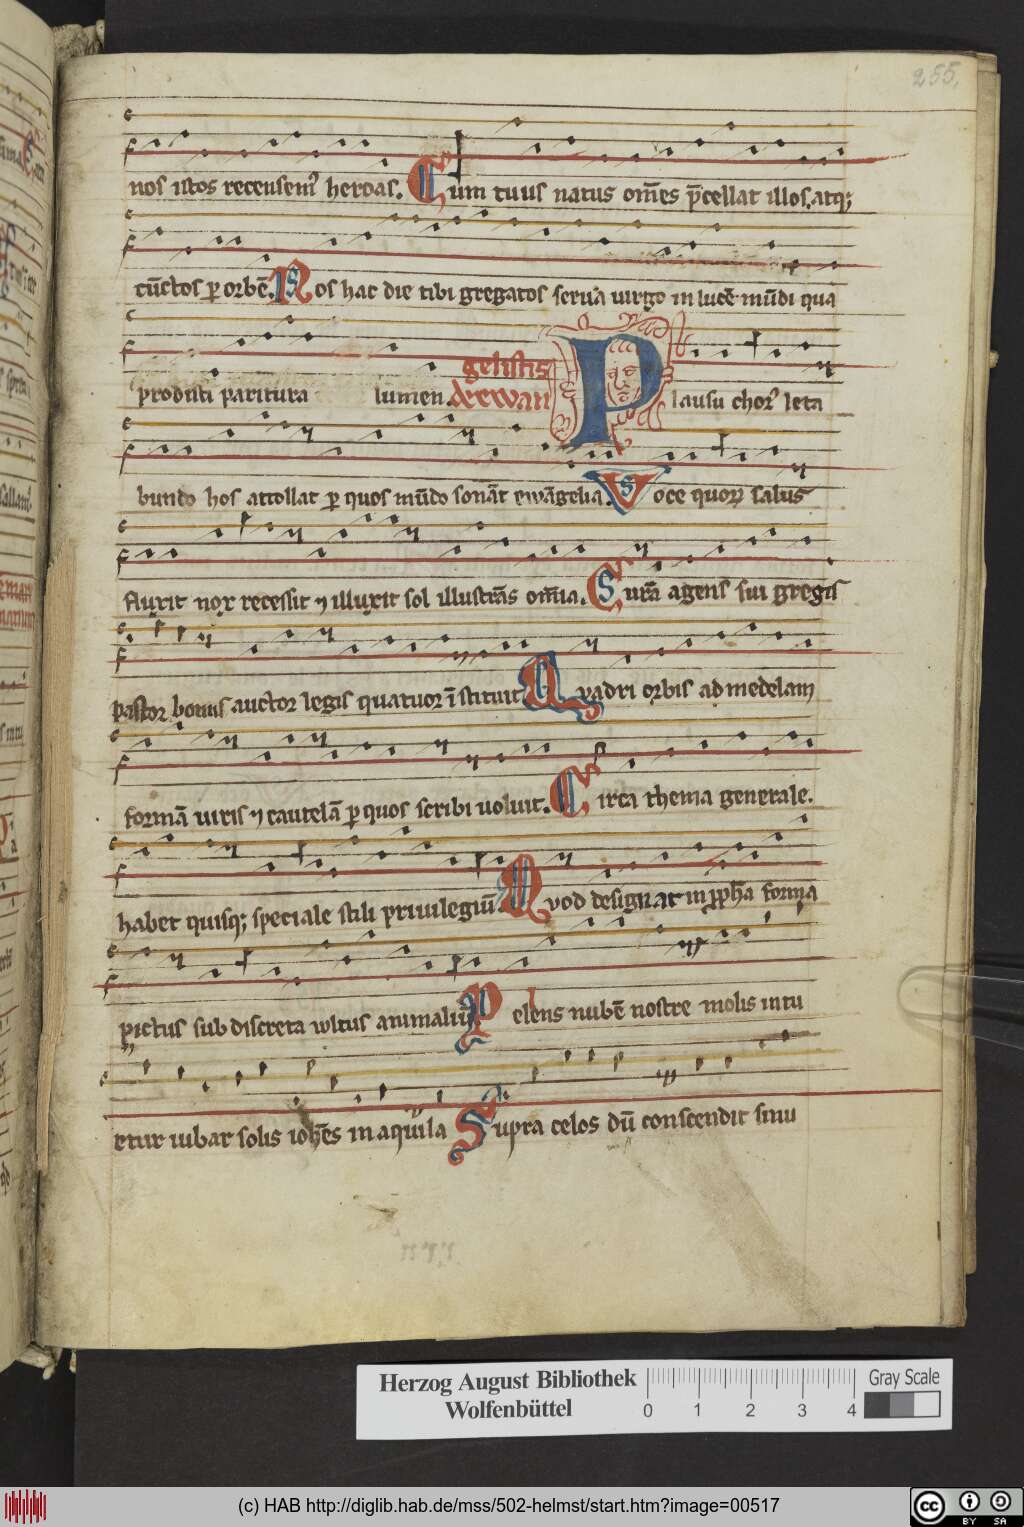 255.
nos istos recensem᷒ heroas. Cum tuus natus om̄es p̄cellat illos. atq;
cūctos ꝑ orbē. Nos hac die tibi gregatos serua uirgo in lucē mūdi qua
prodisti paritura lumen. De ewan
gelistis
Plausu chor᷒ leta
bundo hos attollat ꝑ quos mūdo sonāt ewāgelia. Voce quoꝝ salus
fluxit nox recessit ⁊ illuxit sol illustrās om̄ia. Curā agens sui gregis
pastor bonus auctor legis quatuor īstituit Quadri orbis ad medelam
formā iuris ⁊ cautelā ꝑ quos scribi uoluit. Circa thema generale.
habet quisq; speciale stili priuilegiū. Quod designat in ꝓpħa forma
pictus sub discreta wltus animaliū Pellens nubē nostre molis intu
etur iubar solis ioħes in aquila Supra celos dū conscendit sinu
Herzog August Bibliothek
Wolfenbüttel
0 1 2 3 4
Gray Scale
(c) HAB http://diglib.hab.de/mss/502-helmst/start.htm?image=00517
cc BY SA